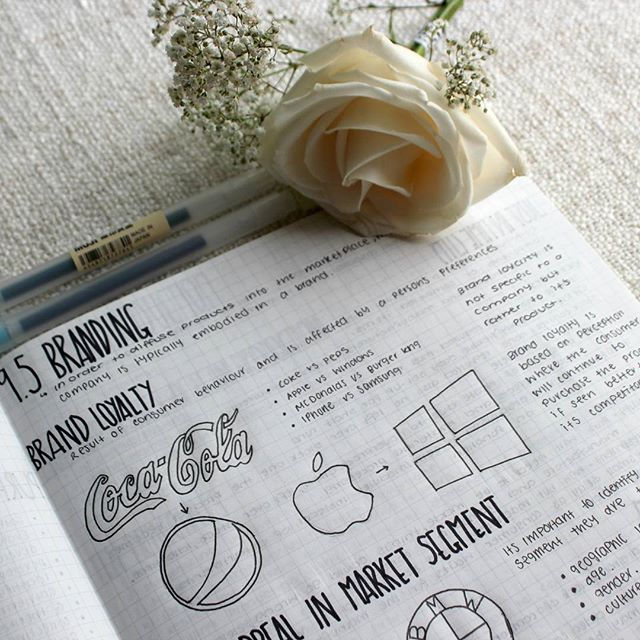 MADE IN
JAPAN
9.5 BRANDING
in order to diffuse products into the marketplace,
company is typically embodied in a brand.
BRAND LOYALTY
Result of consumer behaviour and is affected by a persons preferences
• Coke vs Peps.
• Apple vs Windows
• McDonalds vs Burger King
• iPhone vs Samsung
Coca-Cola
Brand loyalty is
not specific to a
company but
rather to its
product.
Brand loyalty is
based on perception
where the consumer
will continue to
purchase the
if seen better
its competi
APPEAL IN MARKET SEGMENT
its important to identify
segment they are
• geographic
• age
• gender
• cultur